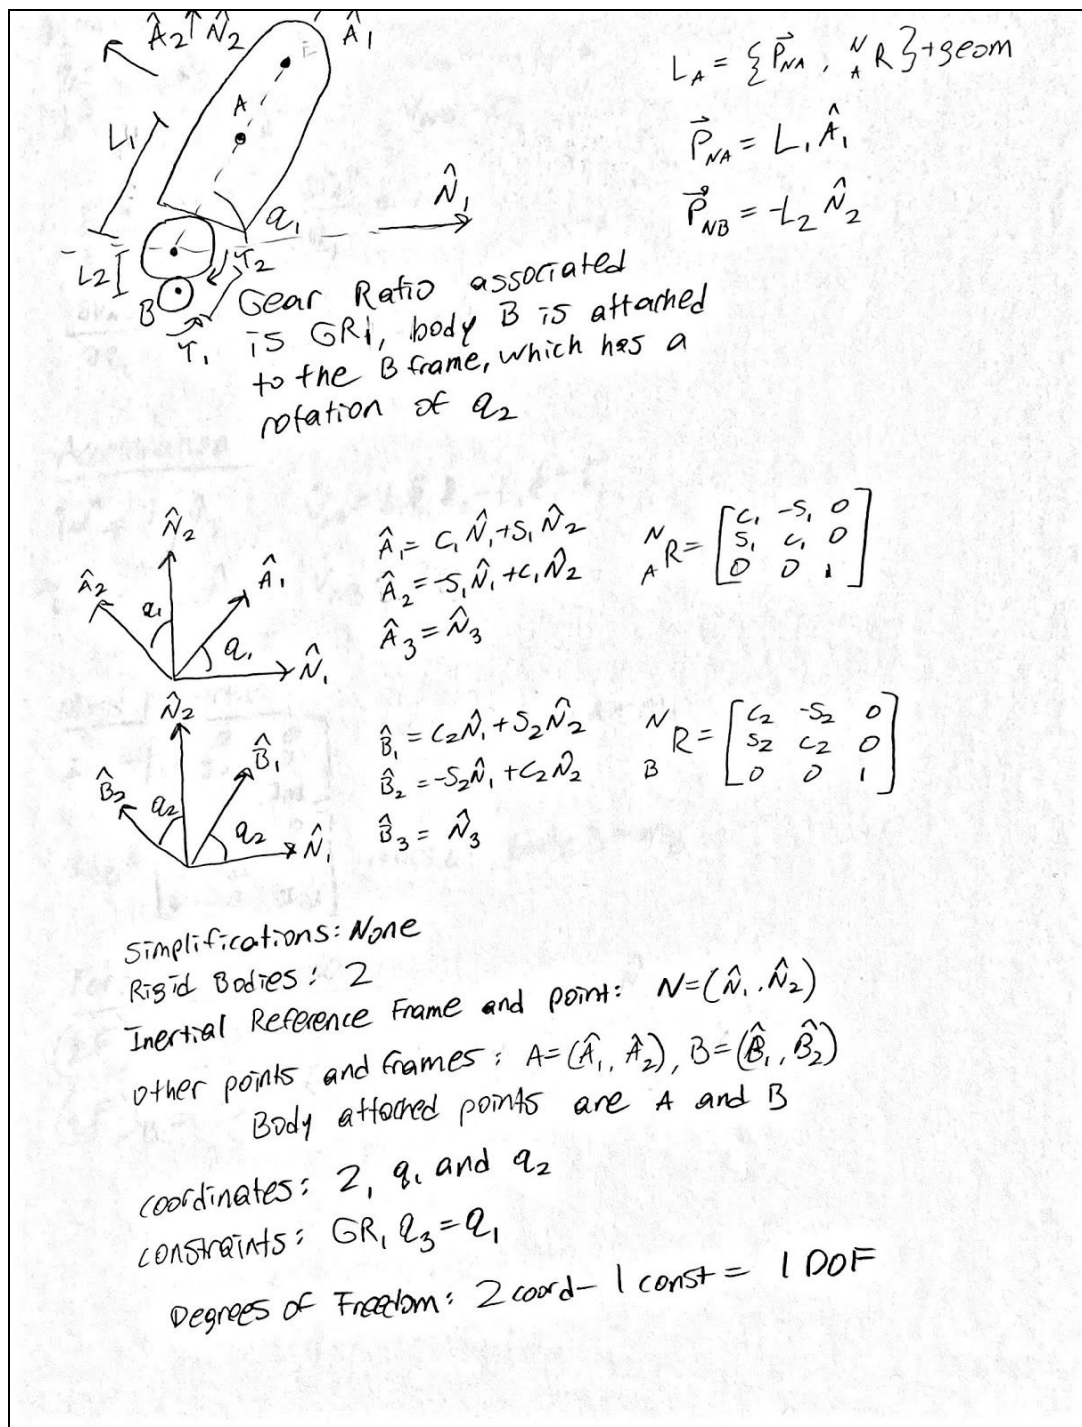 Â₂ N̂₂ Â₁
L_A = {P⃗_NA, ᴺ_A R}+geom
A
L₁
P⃗_NA = L₁ Â₁
N̂₁
q₁
P⃗_NB = -L₂ N̂₂
L₂
T₂
B
T₁
Gear Ratio associated
is GR1, body B is attached
to the B frame, which has a
rotation of q₂
N̂₂
Â₂ Â₁
q₁ q₁
N̂₁
Â₁ = C₁ N̂₁ + S₁ N̂₂
Â₂ = -S₁ N̂₁ + C₁ N̂₂
Â₃ = N̂₃
ᴺ_A R = [C₁ -S₁ 0
S₁ C₁ 0
0 0 1]
N̂₂
B̂₂ B̂₁
q₂ q₂
N̂₁
B̂₁ = C₂ N̂₁ + S₂ N̂₂
B̂₂ = -S₂ N̂₁ + C₂ N̂₂
B̂₃ = N̂₃
ᴺ_B R = [C₂ -S₂ 0
S₂ C₂ 0
0 0 1]
Simplifications: None
Rigid Bodies: 2
Inertial Reference Frame and point: N=(N̂₁, N̂₂)
other points and frames: A=(Â₁, Â₂), B=(B̂₁, B̂₂)
Body attached points are A and B
coordinates: 2, q₁ and q₂
constraints: GR₁ q₃ = q₁
Degrees of Freedom: 2 coord - 1 const = 1 DOF